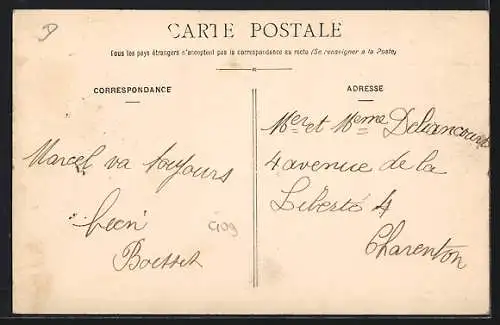 CARTE POSTALE
Tous les pays étrangers n'acceptent pas la correspondance au recto (Se renseigner à la Poste)
CORRESPONDANCE
ADRESSE
Mer et Meme Deliancourt
4 avenue de la
Liberté 4
Charenton
Marcel va toujours
bien
C109